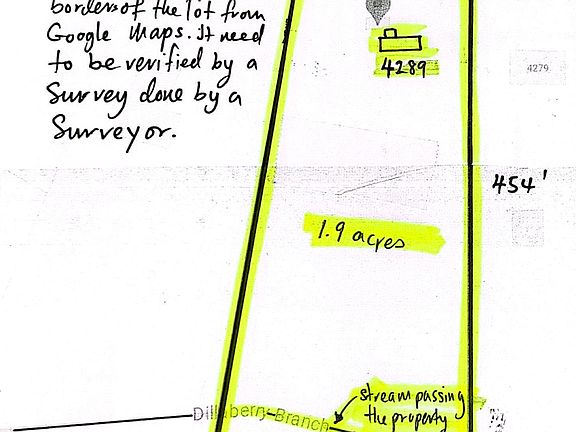 borders of the lot from
Google Maps. It need
to be verified by a
Survey done by a
Surveyor.
4289
4279
454'
1.9 acres
Dillaberry Branch
stream passing
the property